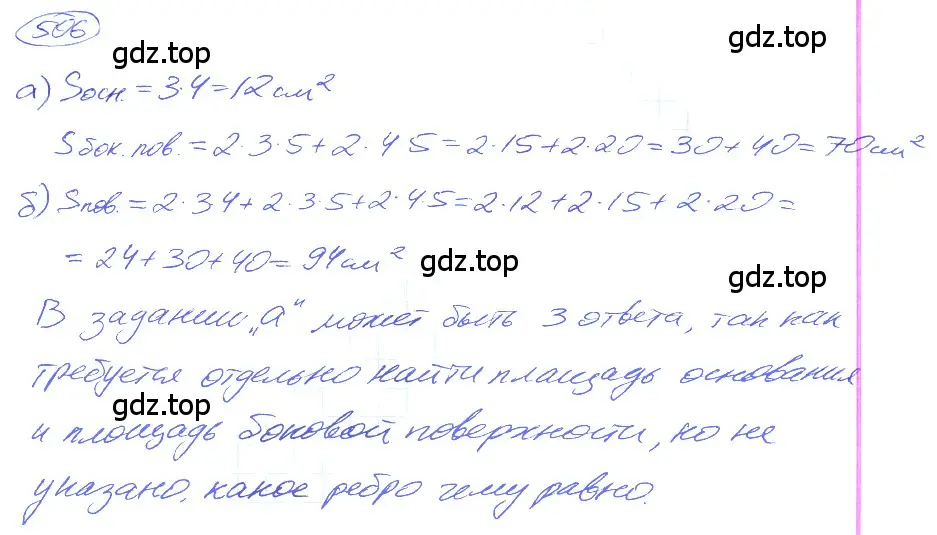 506
gdz.top
gdz.top
а) Sосн. = 3·4 = 12 см²
Sбок. пов. = 2·3·5 + 2·4 5 = 2·15 + 2·20 = 30 + 40 = 70 см²
б) Sпов. = 2·3 4 + 2·3·5 + 2·4·5 = 2·12 + 2·15 + 2·20 =
= 24 + 30 + 40 = 94 см²
gdz.top
gdz.top
В задании „а" может быть 3 ответа, так как
требуется отдельно найти площадь основания
gdz.top
и площадь боковой поверхности, но не
указано, какое ребро чему равно.